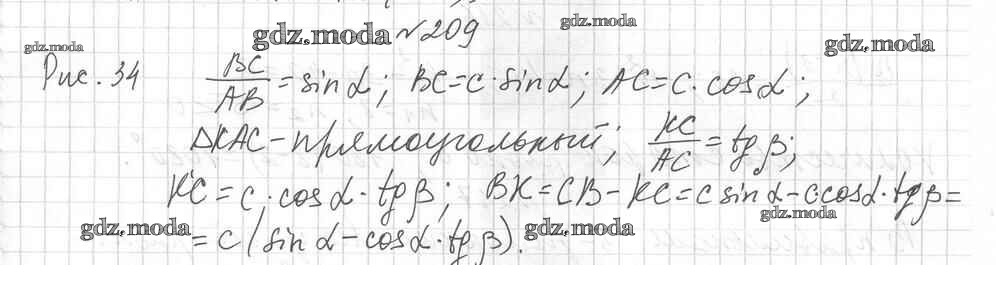 gdz.moda №209 gdz.moda
gdz.moda gdz.moda
Рис. 34 BC/AB = sin α; BC = c·sin α; AC = c·cos α;
ΔKAC – прямоугольный; KC/AC = tg β;
KC = c·cos α·tg β; BK = CB – KC = c sin α – c·cos α·tg β =
gdz.moda
gdz.moda = c (sin α – cos α·tg β). gdz.moda